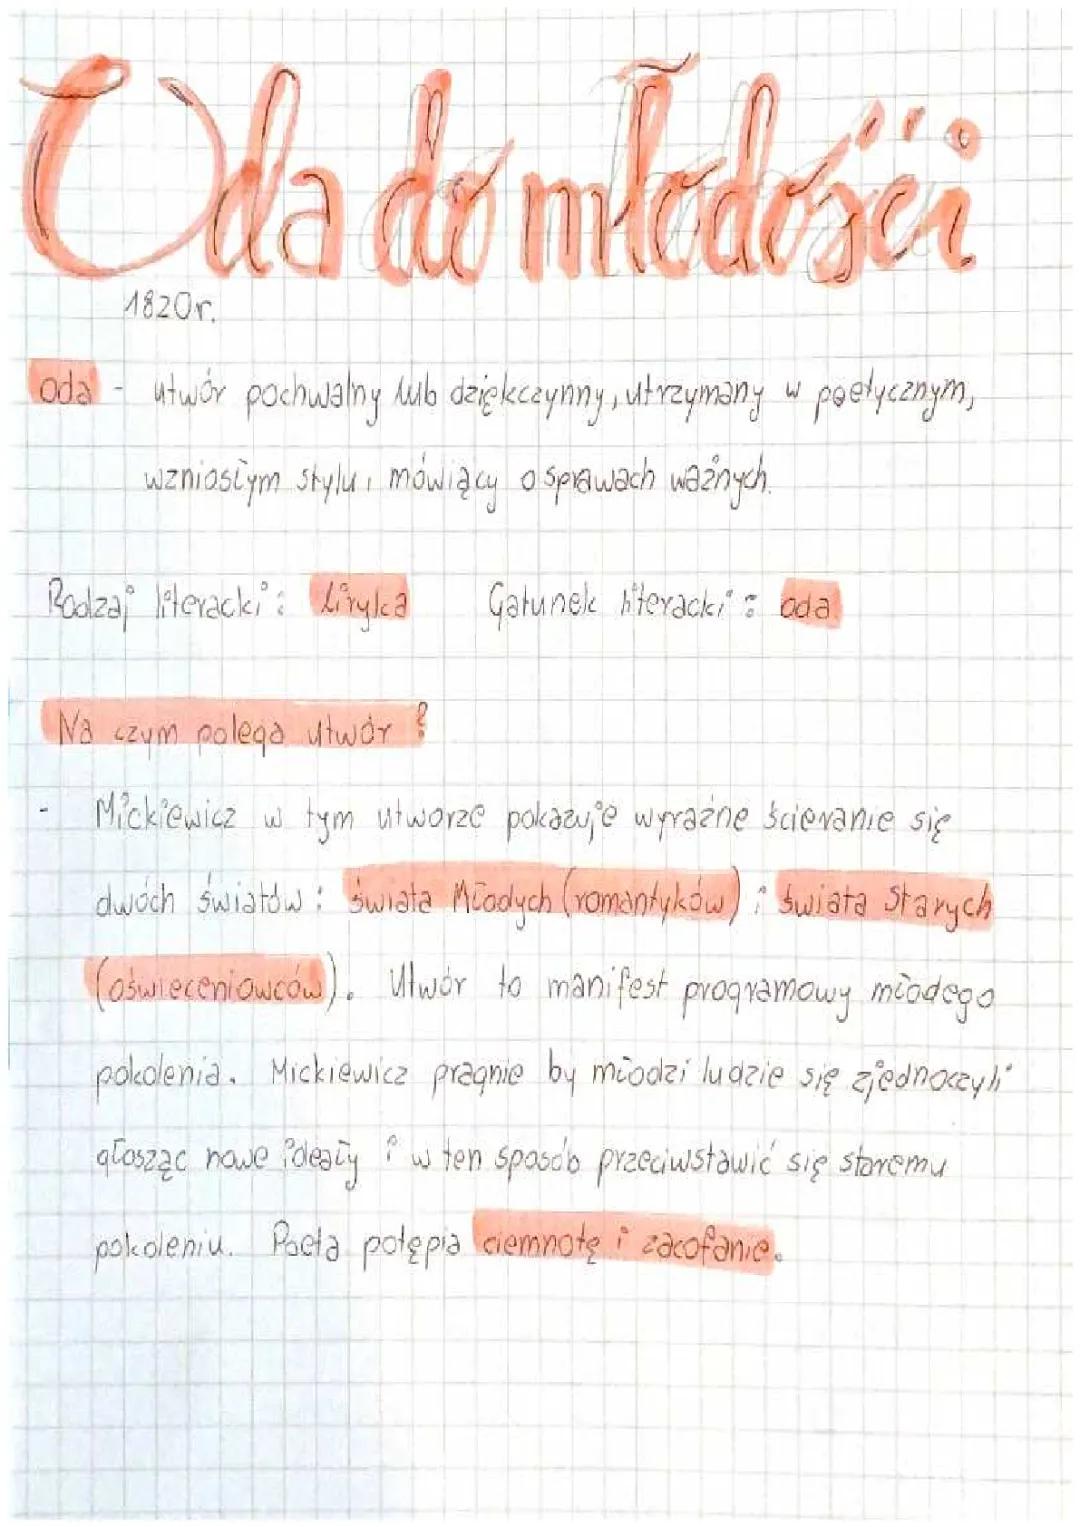 Oda do młodości
1820r.
oda - utwór pochwalny lub dziękczynny, utrzymany w poetycznym,
wzniosłym stylu, mówiący o sprawach ważnych.
Rodzaj literacki: Liryka Gatunek literacki: oda
Na czym polega utwór?
- Mickiewicz w tym utworze pokazuje wyraźne ścieranie się
dwóch światów: świata Młodych (romantyków) i świata Starych
(oświeceniowców). Utwór to manifest programowy młodego
pokolenia. Mickiewicz pragnie by młodzi ludzie się zjednoczyli
głosząc nowe ideały i w ten sposób przeciwstawić się staremu
pokoleniu. Poeta potępia ciemnotę i zacofanie.